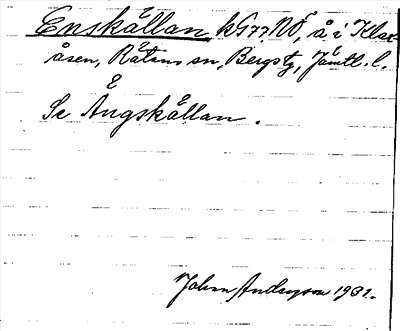 Enskällan kG77NÖ, å i Klax-
åsen, Rätans sn, Bergs tg, Jämtl. l.
Se Ångskällan.
Johan Anderson 1931.